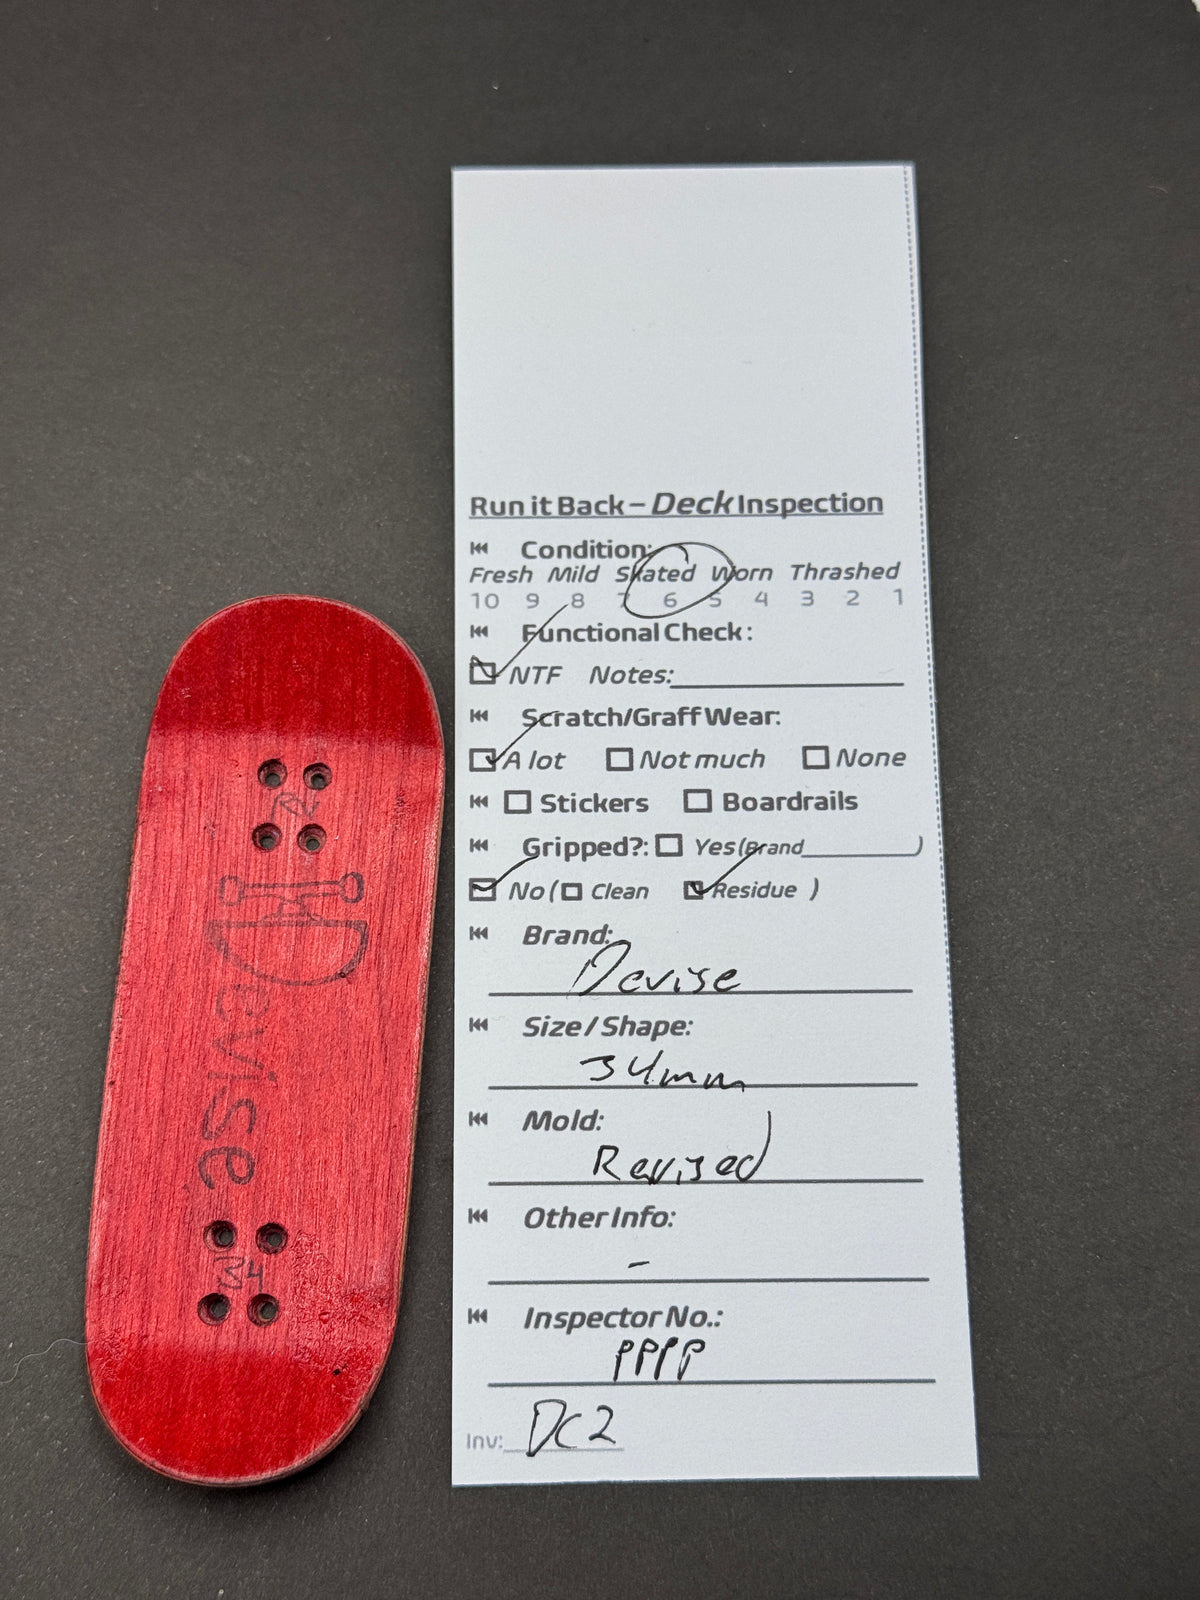 Run it Back – Deck Inspection
Condition:
Fresh Mild Skated Worn Thrashed
10 9 8 7 6 5 4 3 2 1
Functional Check:
NTF Notes:
Scratch/Graff Wear:
A lot Not much None
Stickers Boardrails
Gripped?: Yes (Brand )
No ( Clean Residue )
Brand:
Devise
Size / Shape:
34mm
Mold:
Revised
Other Info:
-
Inspector No.:
PPPP
Inv: DC2
Devise
34